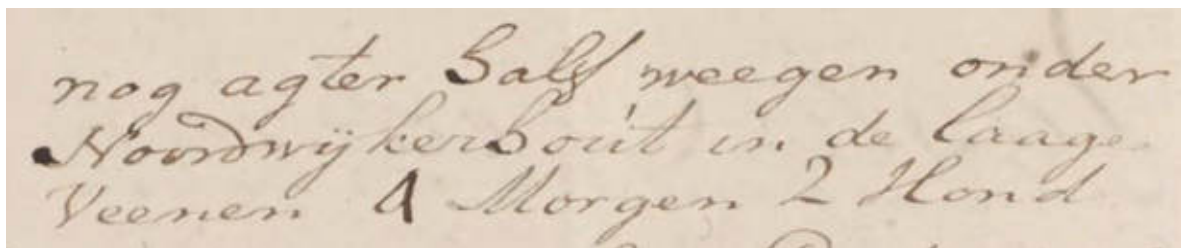 nog agter halfweegen onder
Noordwijkerhout in de laage
Veenen 4 Morgen 2 Hond